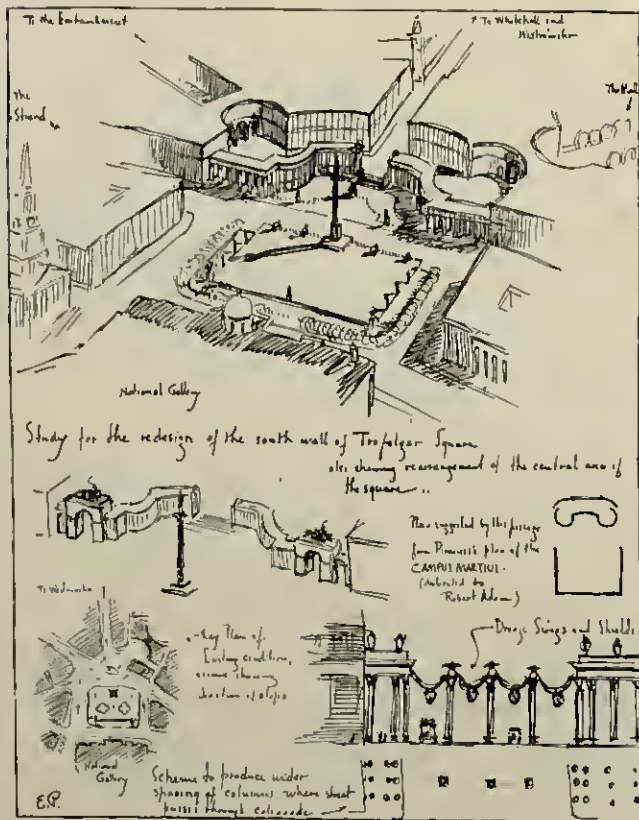 To the Embankment
To Whitehall and
Westminster
The
Strand
The Mall
National Gallery
Study for the redesign of the south wall of Trafalgar Square
also showing rearrangement of the central area of
the square ..
Plan suggested by this passage
from Piranesi's plan of the
CAMPUS MARTIUS.
(dedicated to
Robert Adam)
To Westminster
Key Plan of
Existing conditions,
arrows showing
direction of slope
Bronze Swags and Shields
National
Gallery
Scheme to produce wider
spacing of columns where street
passes through colonnade
E.P.